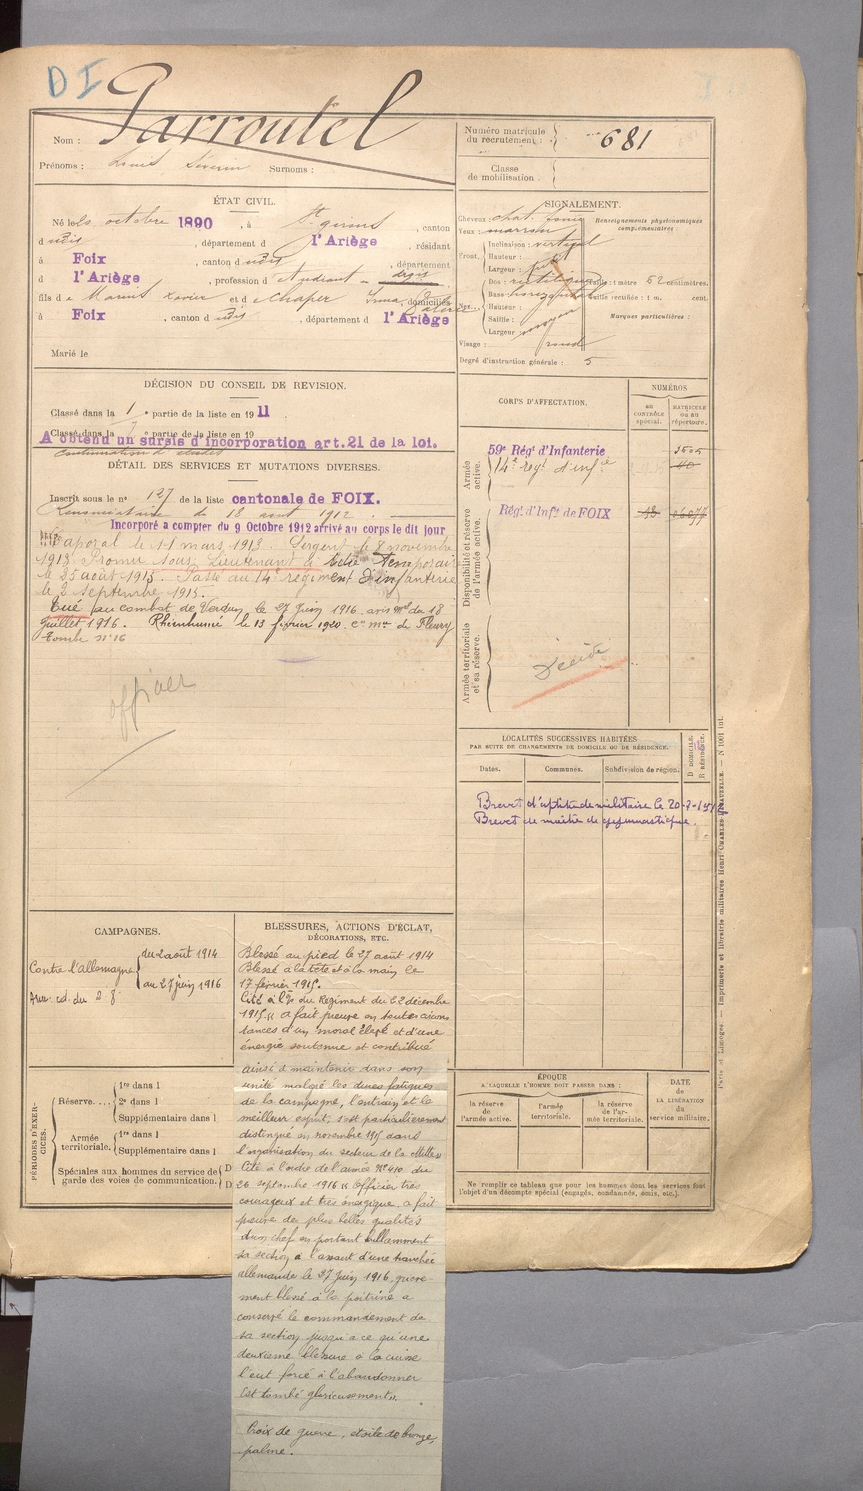 DI
Nom : Parroutel
Prénoms : Louis Séverin Surnoms :
Numéro matricule du recrutement : 681
Classe de mobilisation :
ÉTAT CIVIL.
Né le 20 octobre 1890, à St girons, canton
d udit, département d l'Ariège, résidant
à Foix, canton d udit, département
d l'Ariège, profession d'Etudiant
fils de Marout Xavier et de Chaper, domiciliés
à Foix, canton d udit, département d l'Ariège
Marié le
SIGNALEMENT.
Cheveux : chat.
Yeux : marron
Front.
Inclinaison : vertical
Hauteur :
Largeur :
Nez.
Dos : rectiligne
Base : horizontale
Hauteur :
Saillie :
Largeur : moyen
Visage : rond
Renseignements physionomiques complémentaires :
Taille : 1 mètre 62 centimètres.
Taille rectifiée : 1 m. cent.
Marques particulières :
Degré d'instruction générale : 5
DÉCISION DU CONSEIL DE REVISION.
Classé dans la 1e partie de la liste en 1911
Classé dans la e partie de la liste en 19
A obtenu un sursis d'incorporation art.21 de la loi.
continuation d'études
DÉTAIL DES SERVICES ET MUTATIONS DIVERSES.
Inscrit sous le n° 127 de la liste cantonale de FOIX.
de 18 aout 1912.
Incorporé à compter du 9 Octobre 1912 arrivé au corps le dit jour
Caporal le 11 mars 1913. Sergent le 8 novembre
1913. Promu Sous Lieutenant à titre Temporaire
le 25 août 1915. Passé au 14e régiment d'infanterie
le 2 Septembre 1915.
Tué au combat de Verdun le 27 Juin 1916 avis mel du 18
Juillet 1916. Réinhumé le 13 février 1920 cre mre de Fleury
Tombe n° 16
officier
CORPS D'AFFECTATION.
NUMÉROS
AU CONTRÔLE spécial.
MATRICULE OU AU répertoire.
Armée active.
59e Régt d'Infanterie
14e régt d'infie
Disponibilité et réserve de l'armée active.
Régt d'Infie de FOIX
Armée territoriale et sa réserve.
Décédé
LOCALITÉS SUCCESSIVES HABITÉES
PAR SUITE DE CHANGEMENTS DE DOMICILE OU DE RÉSIDENCE.
Dates. Communes. Subdivision de région. D DOMICILE. R RÉSIDENCE.
Brevet d'aptitude militaire le 20-7-1912
Brevet de maître de gymnastique.
CAMPAGNES.
Contre l'allemagne du 2 août 1914
au 27 juin 1916
BLESSURES, ACTIONS D'ÉCLAT,
DÉCORATIONS, ETC.
Blessé au pied le 27 août 1914
Blessé à la tête et à la main le
17 février 1915.
Cité à l'O. du Régiment du 22 décembre
1915 « a fait preuve en toutes circons
tances d'un moral élevé et d'une
énergie soutenue et contribué
ainsi à maintenir dans son
unité malgré les dures fatigues
de la campagne, l'entrain et le
meilleur esprit, s'est particulièrement
distingué en novembre 1915 dans
l'organisation du secteur de la Mille »
Cité à l'ordre de l'armée N° 410 du
26 septembre 1916 « Officier très
courageux et très énergique, a fait
preuve des plus belles qualités
d'un chef en portant brillamment
sa section à l'assaut d'une tranchée
allemande le 27 Juin 1916, griève-
ment blessé à la poitrine a
conservé le commandement de
sa section jusqu'à ce qu'une
deuxième blessure à la cuisse
l'eut forcé à l'abandonner
Est tombé glorieusement ».
Croix de guerre, étoile de bronze,
palme.
PÉRIODES D'EXERCICES.
Réserve....
1re dans l
2e dans l
Supplémentaire dans l
Armée territoriale.
1re dans l
Supplémentaire dans l
Spéciales aux hommes du service de garde des voies de communication. D D
ÉPOQUE
A LAQUELLE L'HOMME DOIT PASSER DANS :
la réserve de l'armée active.
l'armée territoriale.
la réserve de l'armée territoriale.
DATE DE LA LIBÉRATION du service militaire.
Ne remplir ce tableau que pour les hommes dont les services font
l'objet d'un décompte spécial (engagés, condamnés, omis, etc.).
Paris et Limoges. — Imprimerie et librairie militaires Henri CHARLES-LAVAUZELLE. — N 1001 int.